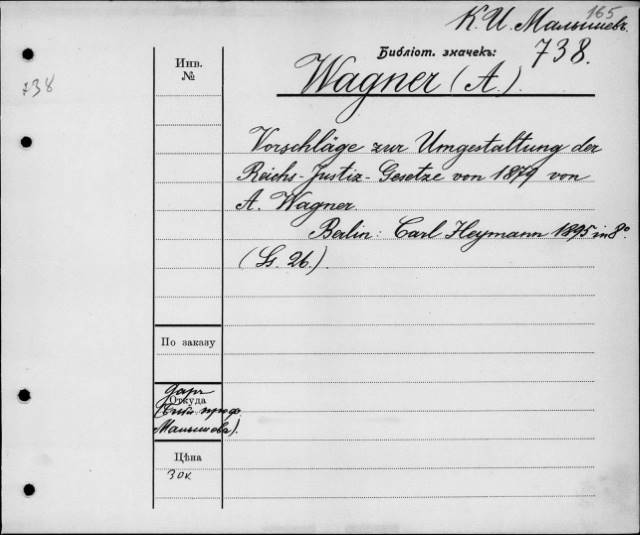 165
К. И. Малышевъ.
Библіот. значекъ:
738.
Инв.
№
738
Wagner (A.)
Vorschläge zur Umgestaltung der
Reichs-Justiz-Gesetze von 1879 von
A. Wagner.
Berlin: Carl Heymann 1895 in 8º
(S. 26.)
По заказу
Даръ
Откуда
(Библ. проф.
Малышева).
Цѣна
30к